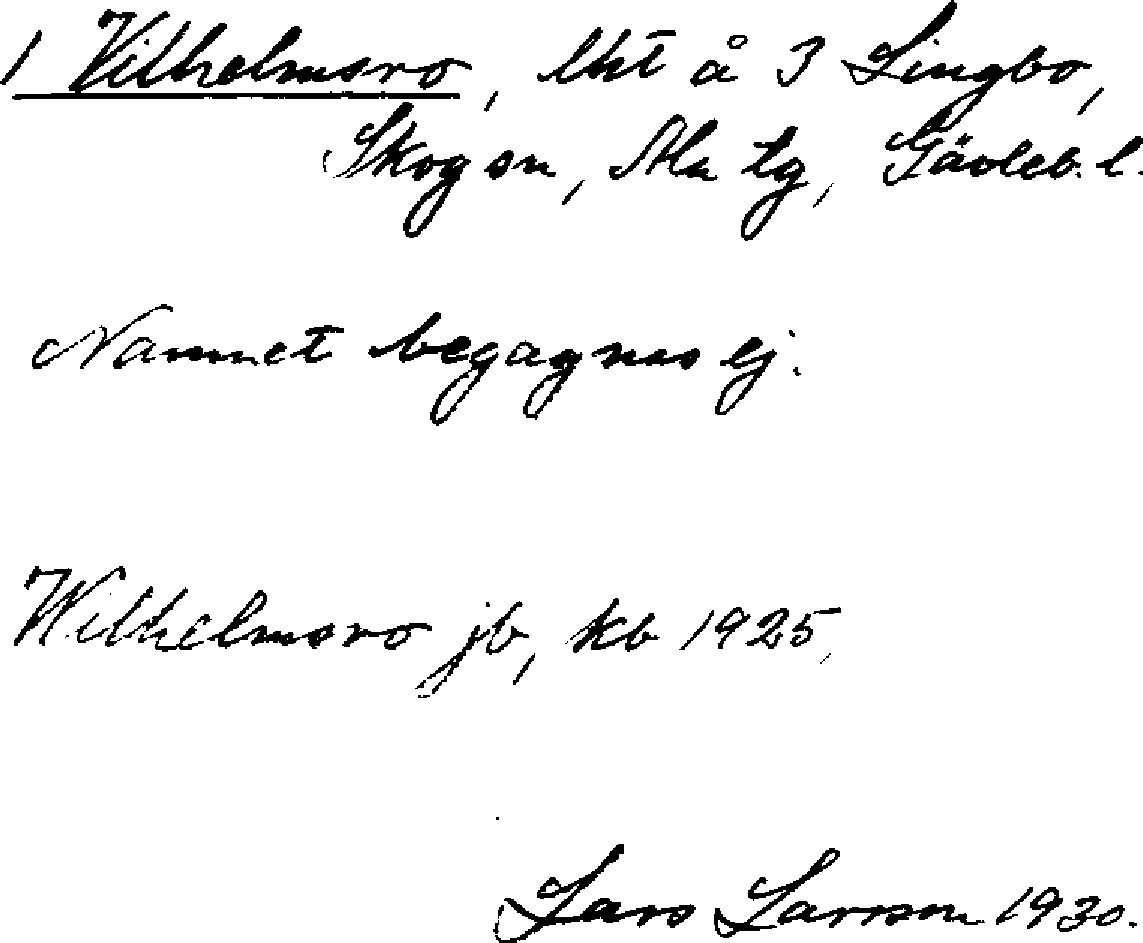 1 Vilhelmsro, lht å 3 Lingbo,
Skog sn, Ala tg, Gävleb. l.
Namnet begagnas ej.
Wilhelmsro jb, kb 1925,
Lars Larsson 1930.